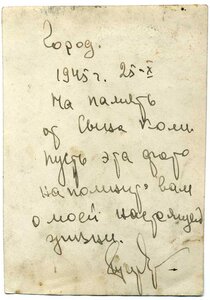 Город.
1945 г. 25-X
На память
от Сына Коли
пусть эта фото
напомнит вам
о моей настоящей